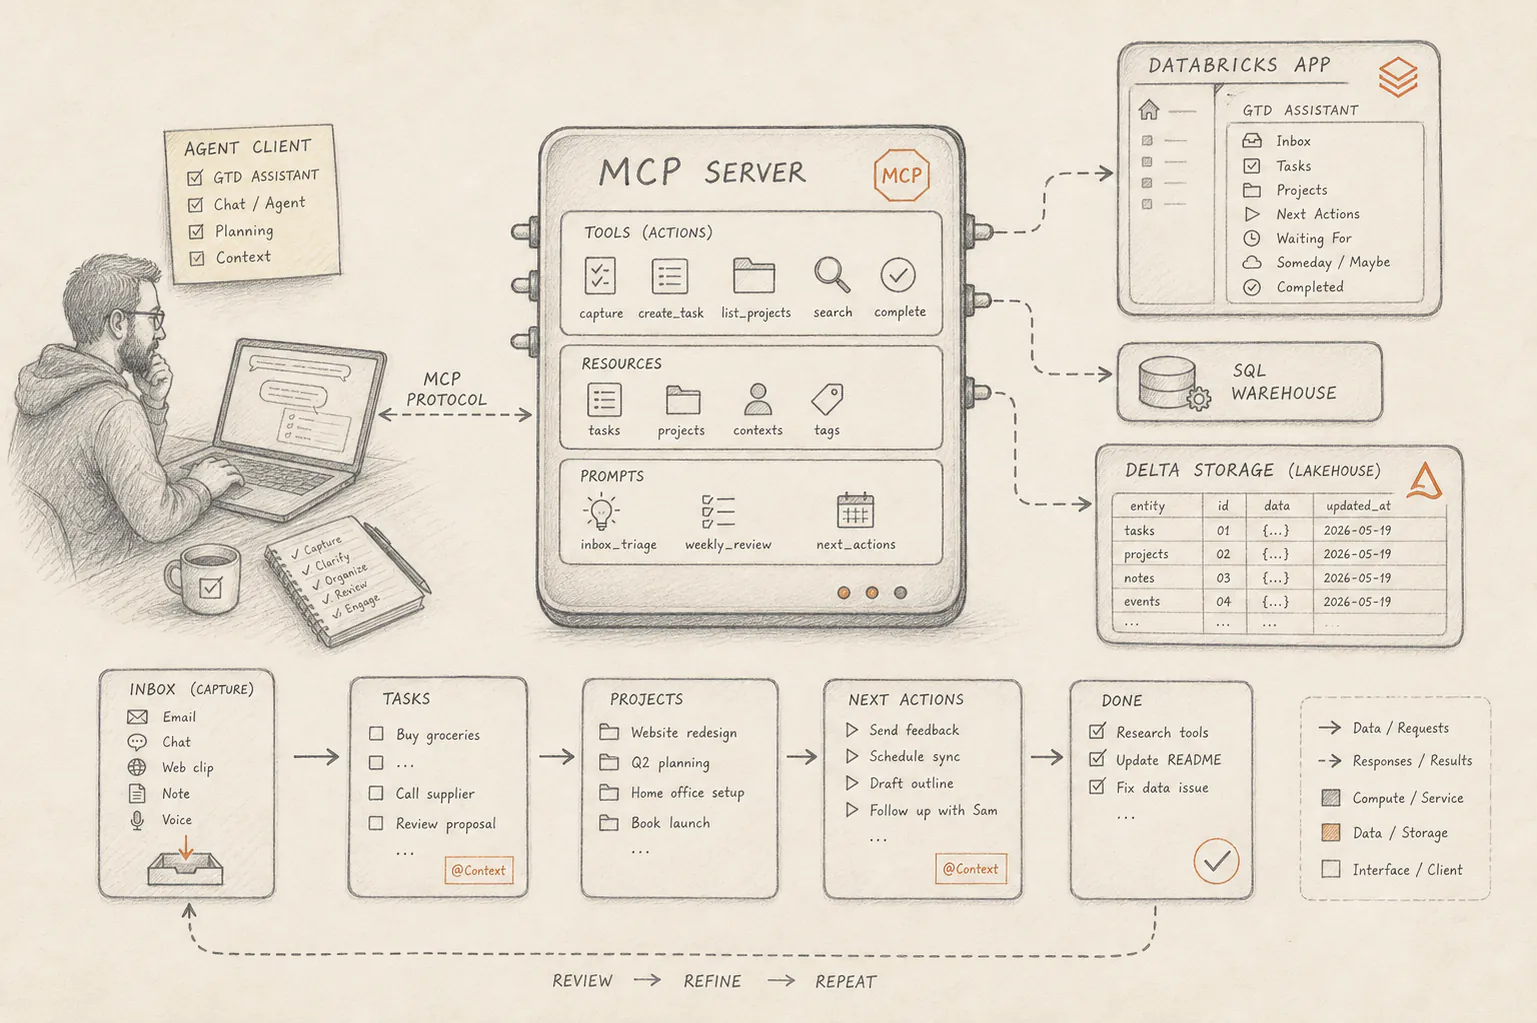 AGENT CLIENT
GTD ASSISTANT
Chat / Agent
Planning
Context
MCP
PROTOCOL
Capture
Clarify
Organize
Review
Engage
MCP SERVER
MCP
TOOLS (ACTIONS)
capture create_task list_projects search complete
RESOURCES
tasks projects contexts tags
PROMPTS
inbox_triage weekly_review next_actions
DATABRICKS APP
GTD ASSISTANT
Inbox
Tasks
Projects
Next Actions
Waiting For
Someday / Maybe
Completed
SQL
WAREHOUSE
DELTA STORAGE (LAKEHOUSE)
entity id data updated_at
tasks 01 {...} 2026-05-19
projects 02 {...} 2026-05-19
notes 03 {...} 2026-05-19
events 04 {...} 2026-05-19
... ... ... ...
INBOX (CAPTURE)
Email
Chat
Web clip
Note
Voice
TASKS
Buy groceries
...
Call supplier
Review proposal
...
@Context
PROJECTS
Website redesign
Q2 planning
Home office setup
Book launch
...
NEXT ACTIONS
Send feedback
Schedule sync
Draft outline
Follow up with Sam
...
@Context
DONE
Research tools
Update README
Fix data issue
...
Data / Requests
Responses / Results
Compute / Service
Data / Storage
Interface / Client
REVIEW → REFINE → REPEAT